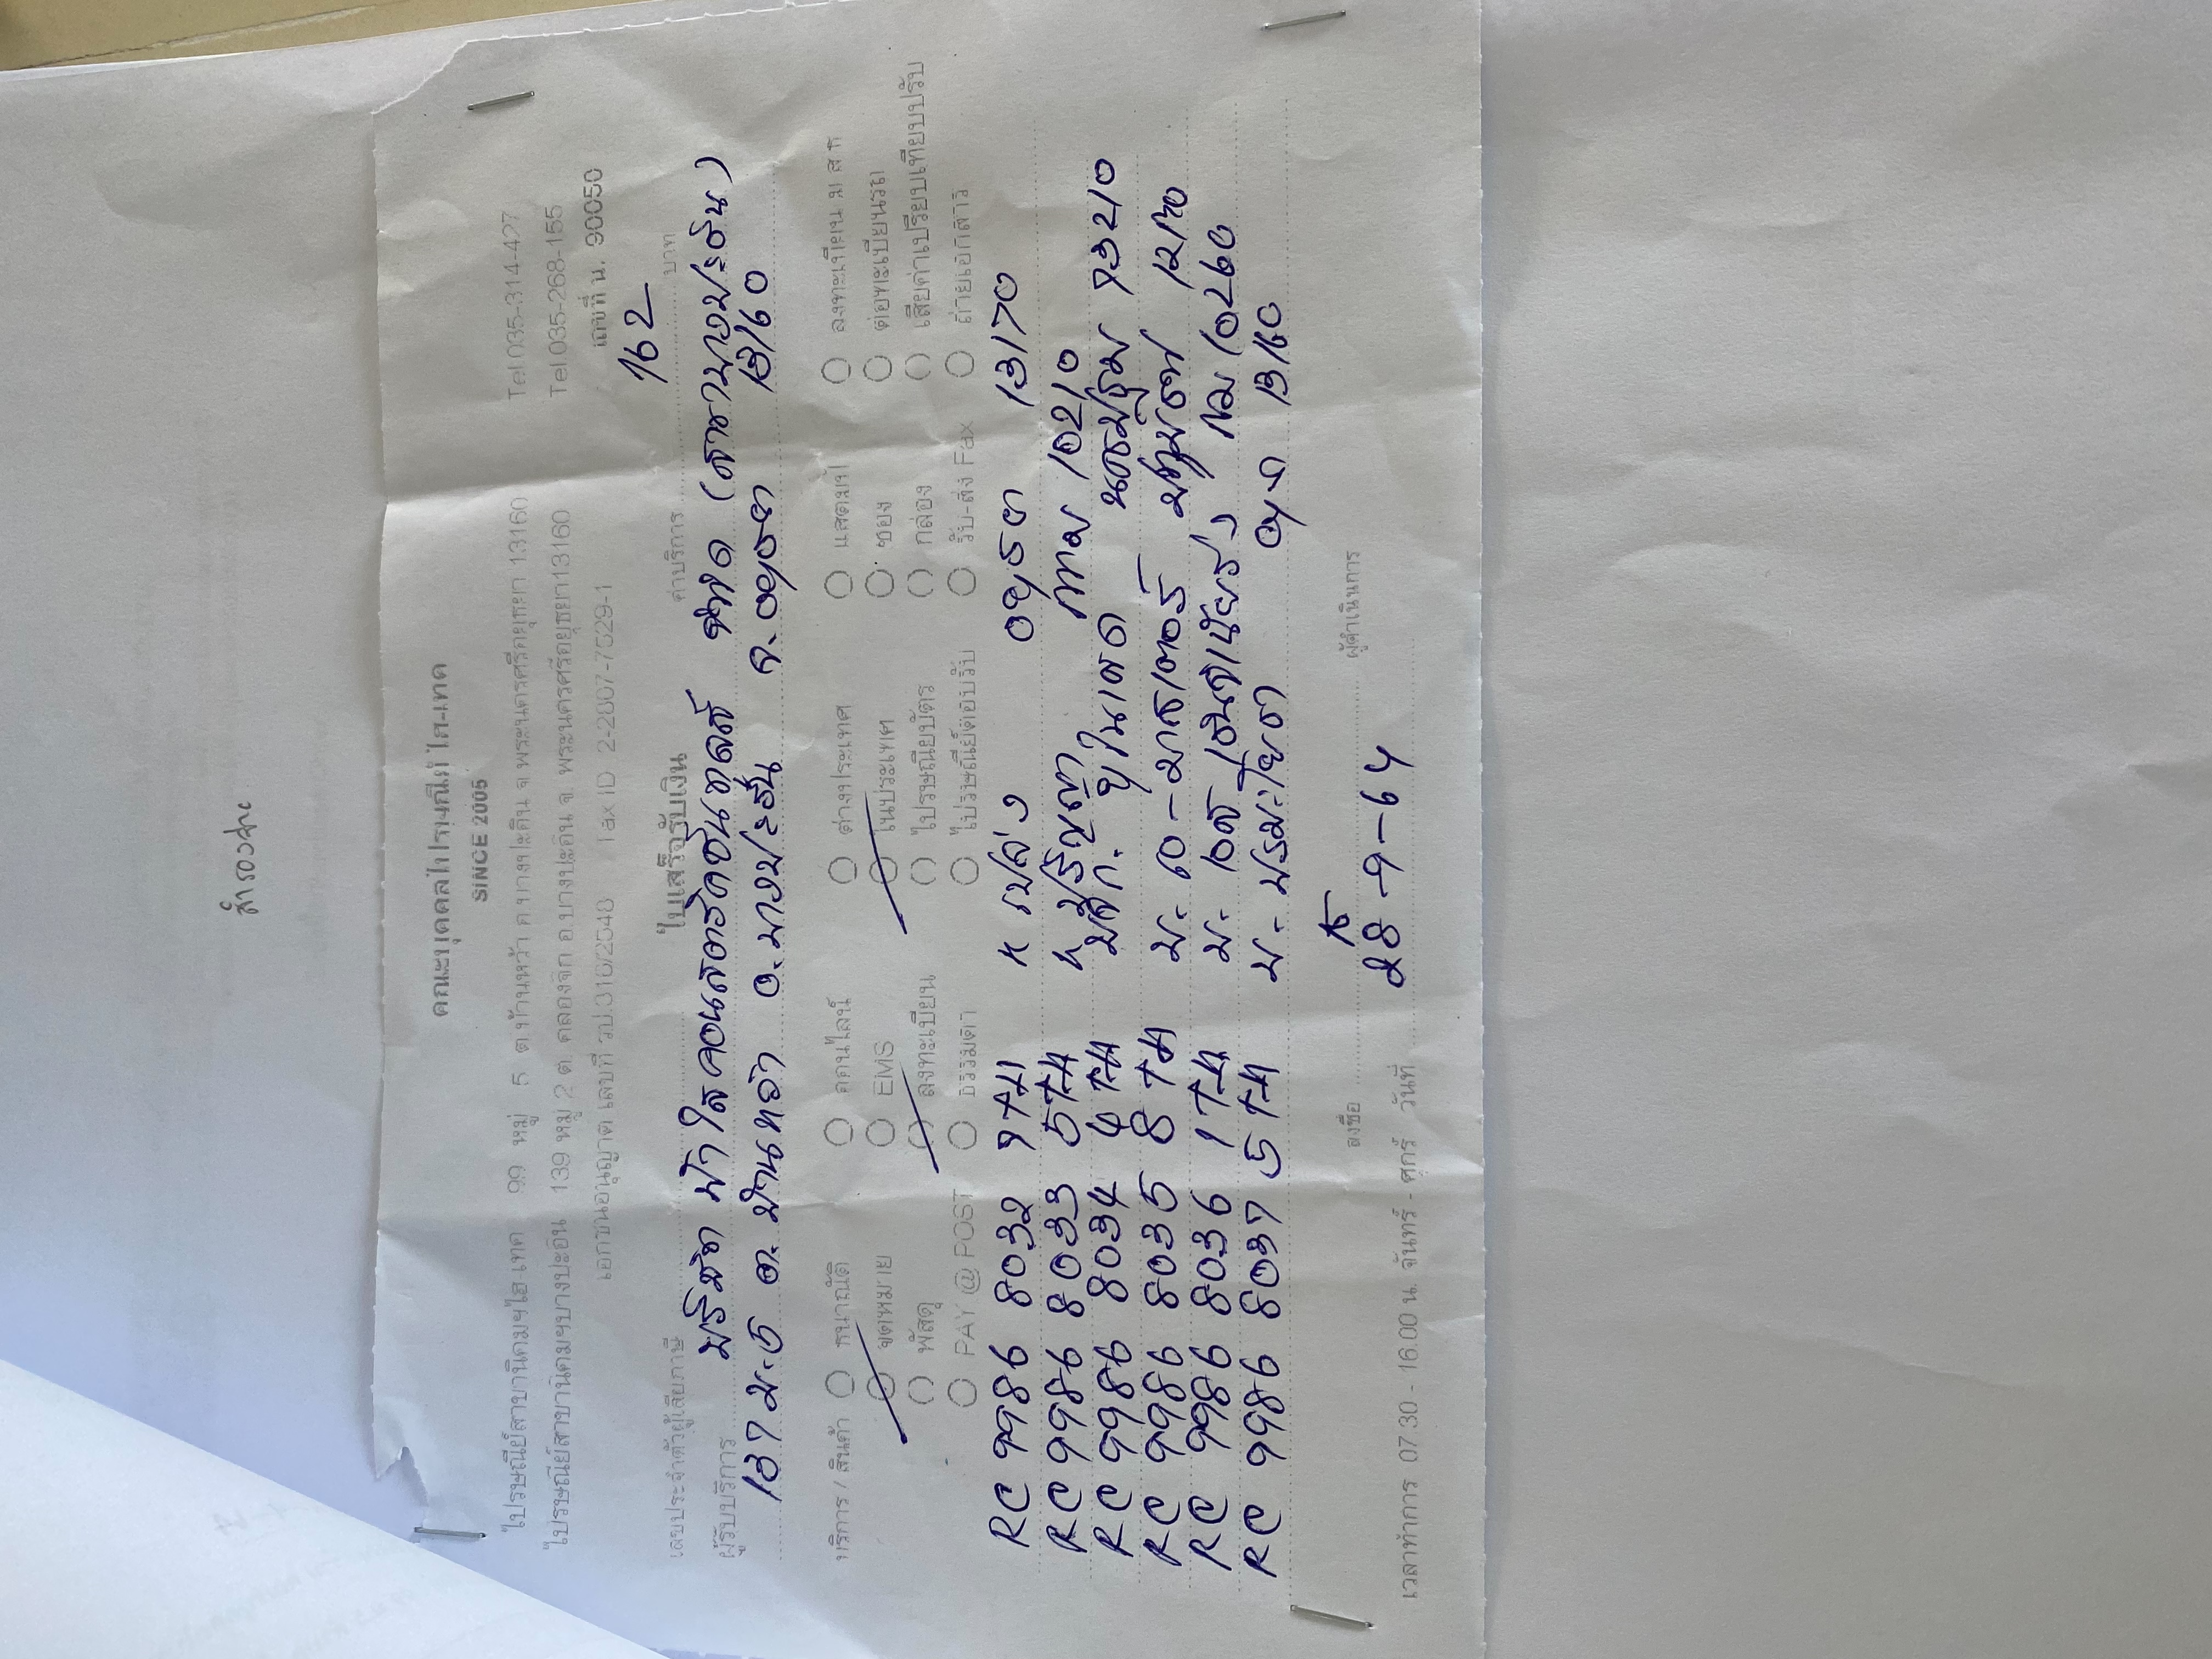 สำรองจ่าย
คณะบุคคลไปรษณีย์ ไฮ-เทค
SINCE 2005
ไปรษณีย์สาขานิคมฯไฮ-เทค 99 หมู่ 5 ต.บ้านหว้า อ.บางปะอิน จ.พระนครศรีอยุธยา 13160 Tel.035-314-427
ไปรษณีย์สาขานิคมฯบางปะอิน 139 หมู่ 2 ต. คลองจิก อ.บางปะอิน จ. พระนครศรีอยุธยา13160 Tel.035-268-155
เอกชนอนุญาต เลขที่ รป.316/2548 Tax ID 2-2807-7529-1 เลขที่ น. 90050
เลขประจำตัวผู้เสียภาษี ใบเสร็จรับเงิน ค่าบริการ 162 บาท
ผู้รับบริการ บริษัท ฟ้าใสคอนสตรัคชั่นทูลส์ จำกัด (สาขาบางปะอิน)
137 ม.5 ต.บ้านหว้า อ.บางปะอิน จ.อยุธยา 13160
บริการ / สินค้า ธนาณัติ ออนไลน์ ต่างประเทศ แสตมป์ ลงทะเบียน ม ส ธ
จดหมาย EMS ในประเทศ ซอง ต่อทะเบียนรถ
พัสดุ ลงทะเบียน ไปรษณียบัตร กล่อง เสียค่าเปรียบเทียบปรับ
PAY @ POST ธรรมดา ไปรษณีย์ตอบรับ รับ-ส่ง Fax ถ่ายเอกสาร
RC 9986 8032 7TH ค เปล่ง อยุธยา 13170
RC 9986 8033 5TH ค ปริญญา กทม 10210
RC 9986 8034 4TH บจก. ยูไนเตด นครปฐม 73210
RC 9986 8035 8TH บ. เอ-มาสเตอร์ ปทุมธานี
RC 9986 8036 1TH บ. เอส เอ็นจิเนียริ่ง กทม 10260
RC 9986 8037 5TH บ. อย 13160
ลงชื่อ ผู้ดำเนินการ
เวลาทำการ 07.30 - 16.00 น. จันทร์ - ศุกร์ วันที่ 28-9-64